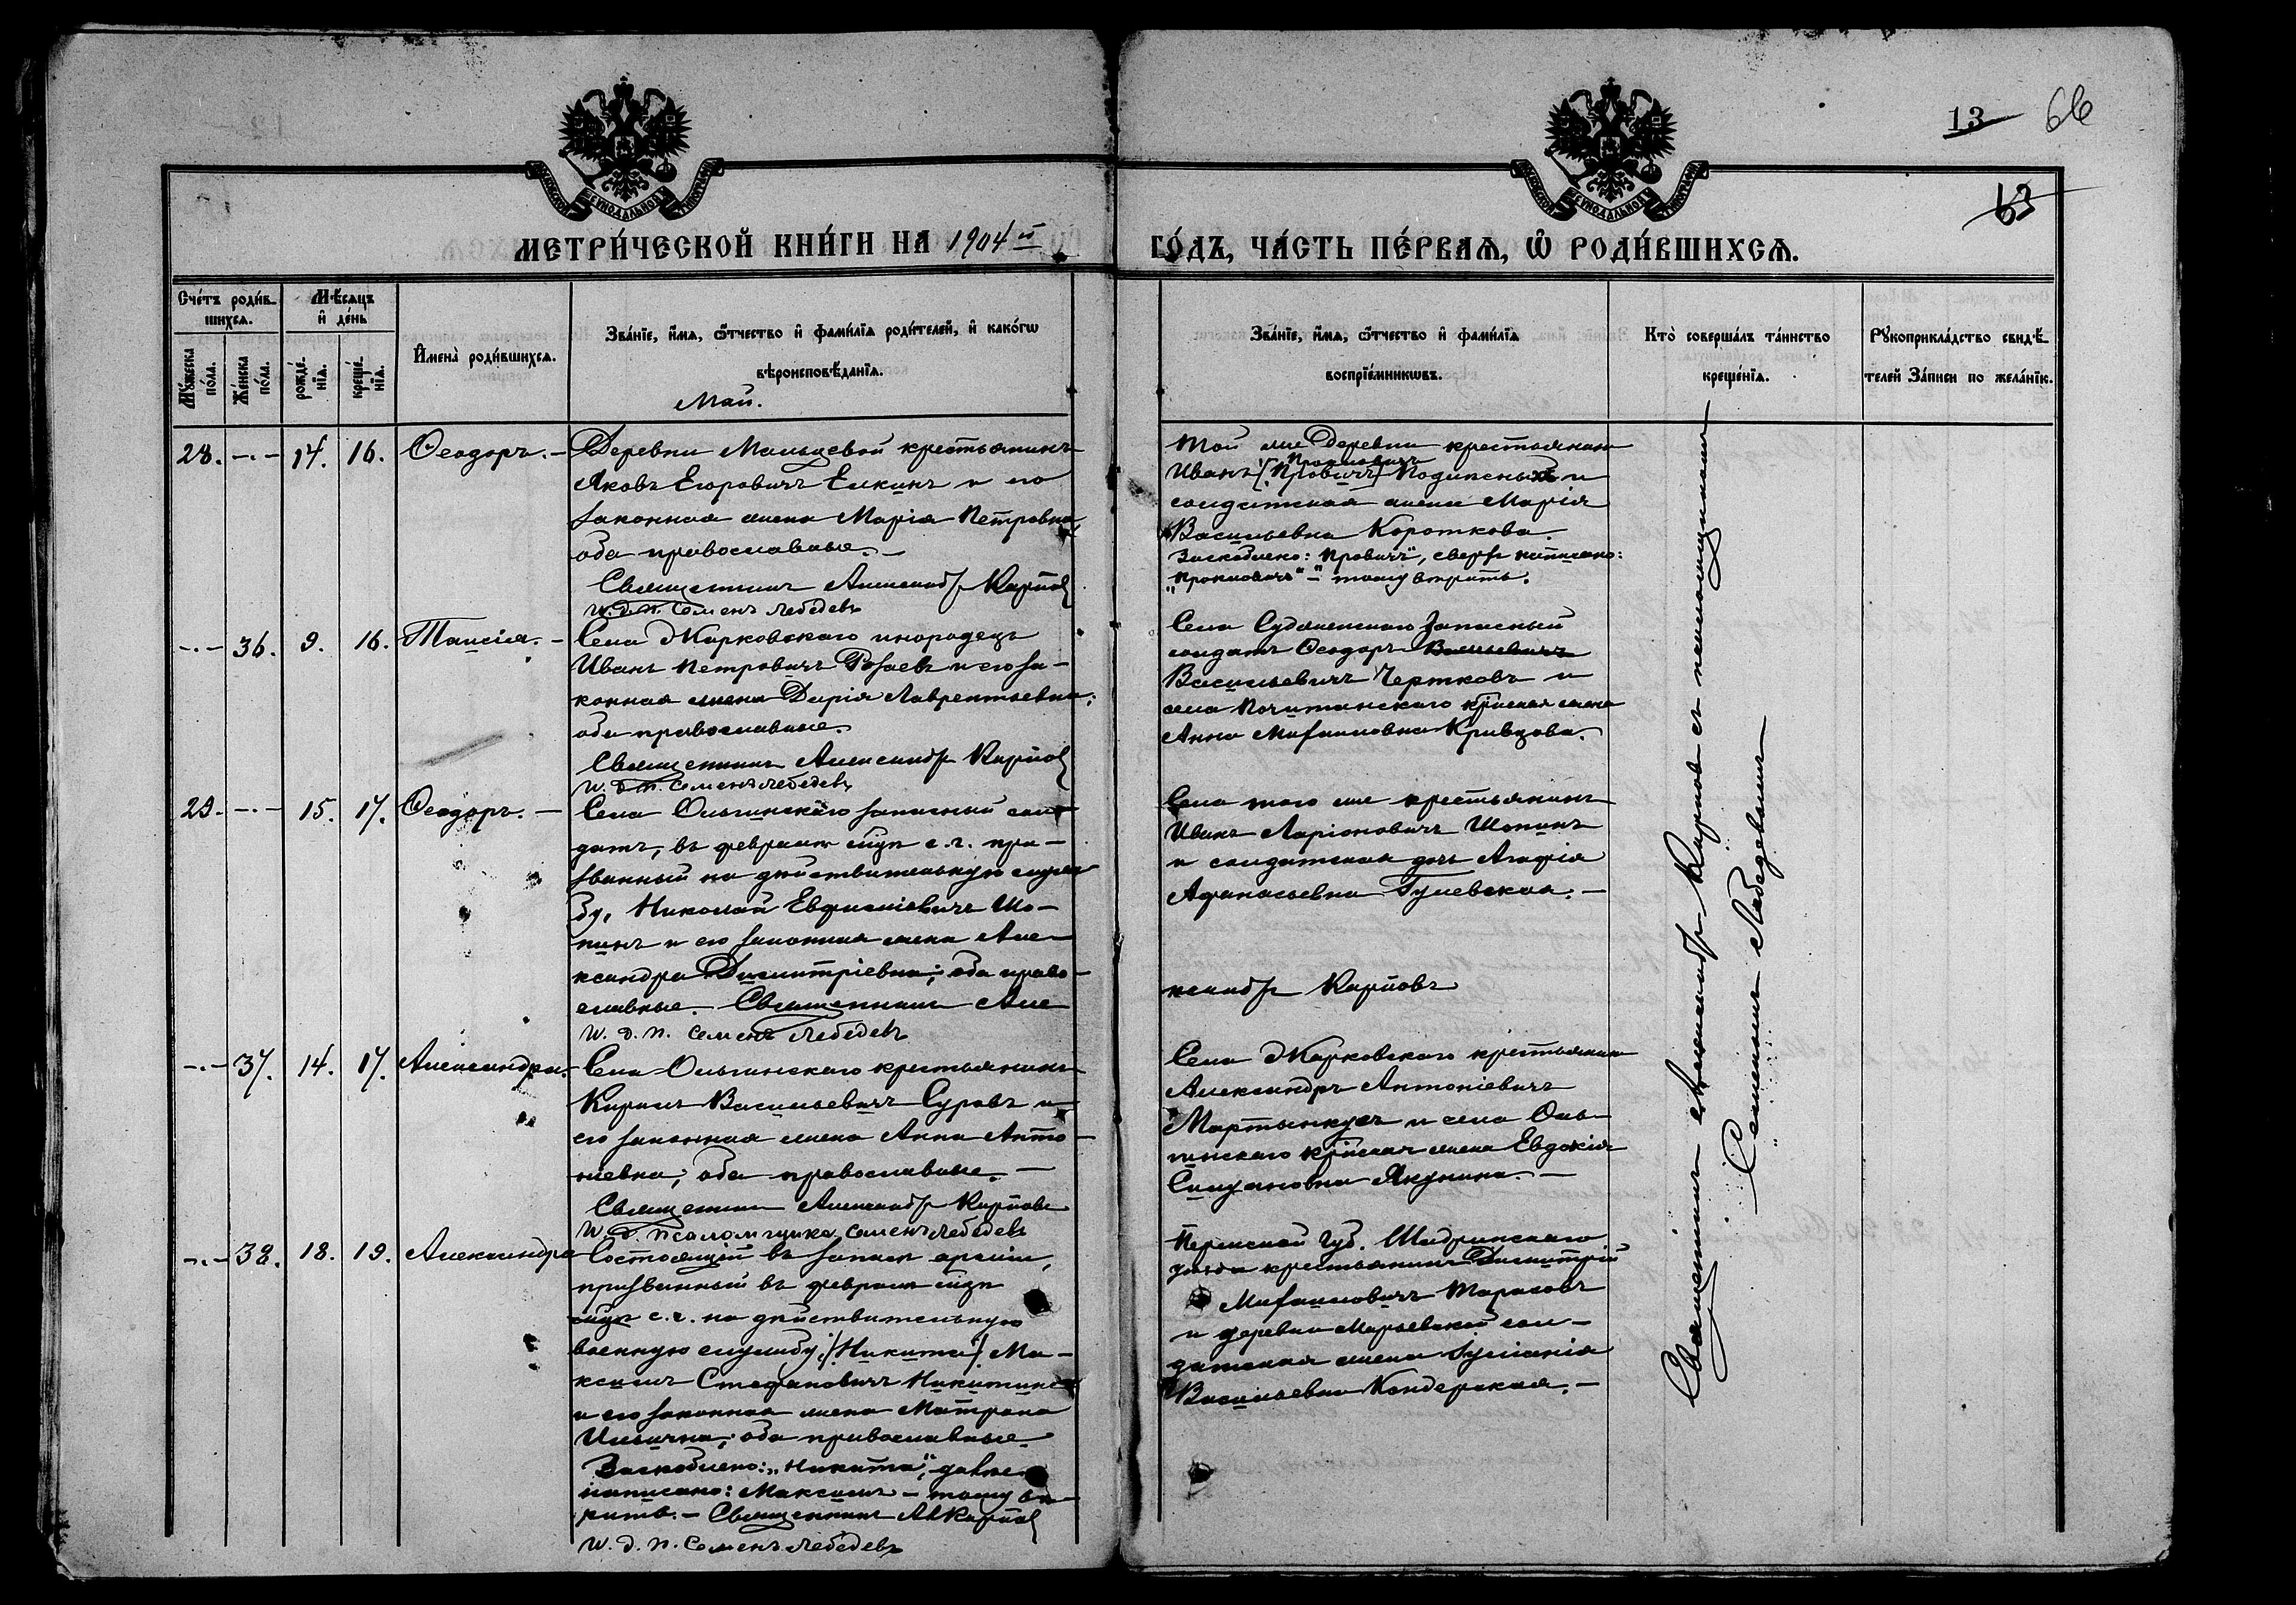 13 66
63
МЕТРИ́ЧЕСКОЙ КНИ́ГИ НА 1904 й
ГО́ДЪ, ЧА́СТЬ ПЕ́РВАѦ, Ѡ҆ РОДИ́ВШИХСѦ.
Сче́тъ роди́в-
шихсѧ.
Мѣ́сѧцъ
и҆ де́нь
Мꙋ́жеска
по́ла.
Же́нска
по́ла.
рожде́-
нїѧ.
креще́-
нїѧ.
И҆мена̀ роди́вшихсѧ.
Зва́нїе, и҆́мѧ, ѻ҆́тчество и҆ фами́лїѧ роди́телей, и҆ како́гѡ
вѣроисповѣ́данїѧ.
Май.
Зва́нїе, и҆́мѧ, ѻ҆́тчество и҆ фами́лїѧ
воспрїе́мникѡвъ.
Кто̀ соверша́лъ та́инство
креще́нїѧ.
Рꙋкоприкла́дство свидѣ́-
телей За́писи по жела́нїю.
28. -.- 14. 16. Ѳеодоръ. -
Деревни Мальцевой крестьянинъ
Яковъ Егоровичъ Елкинъ и его
законная жена Марія Петровна
оба православные. -
Священникъ Александръ Карповъ
И. д. п. Семенъ Лебедевъ
Той же деревни крестьянинъ
Прокловичъ
Иванъ [Провичъ] и
солдатская жена Марія
Васильевна Короткова.
Заскоблено: "Провичъ", сверху написано:
"Прокловичъ" - тому вѣрить.
-.- 36. 9. 16. Таисія. -
Села Жарковскаго инородецъ
Иванъ Петровичъ и его за-
конная жена Дарія Лаврентьевна;
оба православные.
Священникъ Александръ Карповъ
И. д. п. Семенъ Лебедевъ
Села запасный
солдатъ Ѳеодоръ Васильевичъ
Васильевичъ Чертковъ и
села Почитанскаго жена
Анна Михаиловна Кривцова.
29. -.- 15. 17. Ѳеодоръ. -
Села Ольгинскаго запасный сол-
датъ, въ февралѣ с. г. при-
званный на дѣйствительную служ-
бу, Николай Евфиміевичъ Шо-
пинъ и его законная жена Але-
ксандра Димитріевна; оба право-
славные. Священникъ Але
И. д. п. Семенъ Лебедевъ
Села того же крестьянинъ
Иванъ Ларіоновичъ Шопинъ
и солдатская дочь Агафія
Афанасьевна Гулевская. -
ксандръ Карповъ
-.- 37. 14. 17. Александра. -
Села Ольгинскаго крестьянинъ
Кириллъ Васильевичъ Суровъ и
его законная жена Анна Анто-
ніевна; оба православные. -
Священникъ Александръ Карповъ
И. д. псаломщика Семенъ Лебедевъ
Села Жарковскаго крестьянинъ
Александръ Антоніевичъ
и села Оль-
гинскаго жена Евдокія
Якунина. -
-.- 38. 18. 19. Александра
Состоящій въ запасѣ арміи,
призванный въ февралѣ
с. г. на дѣйствительную
военную службу [Никита] Ма-
ксимъ Стефановичъ Никитинъ
и его законная жена Матрона
Ильична; оба православные.
Заскоблено: "Никита", далѣе
написано: Максимъ - тому вѣ-
рить. - Священникъ Ал. Карповъ
И. д. п. Семенъ Лебедевъ
Пермской губ. Шадринскаго
уѣзда крестьянинъ Димитрій
Михаиловичъ Тарасовъ
и деревни Марьевской сол-
датская жена
Васильевна Кондерская. -
Священникъ Александръ Карповъ съ псаломщикомъ
Семеномъ Лебедевымъ